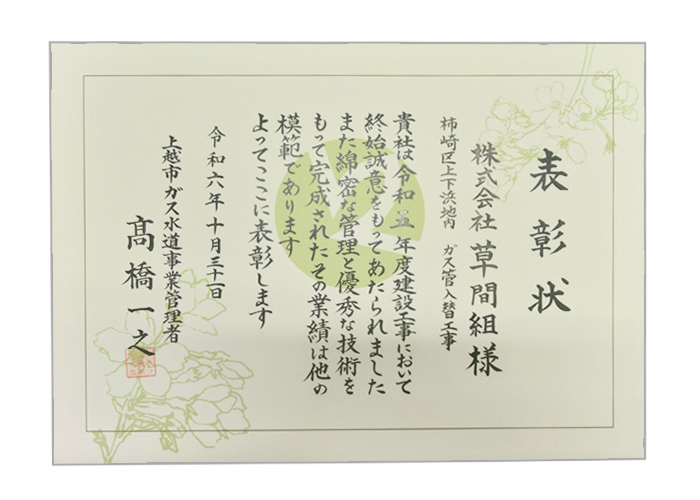 表彰状
株式会社 草間組様
柿崎区上下浜地内 ガス管入替工事
貴社は令和五年度建設工事において
終始誠意をもってあたられました
また綿密な管理と優秀な技術を
もって完成されたその業績は他の
模範であります
よってここに表彰します
令和六年十月三十一日
上越市ガス水道事業管理者
髙橋一之